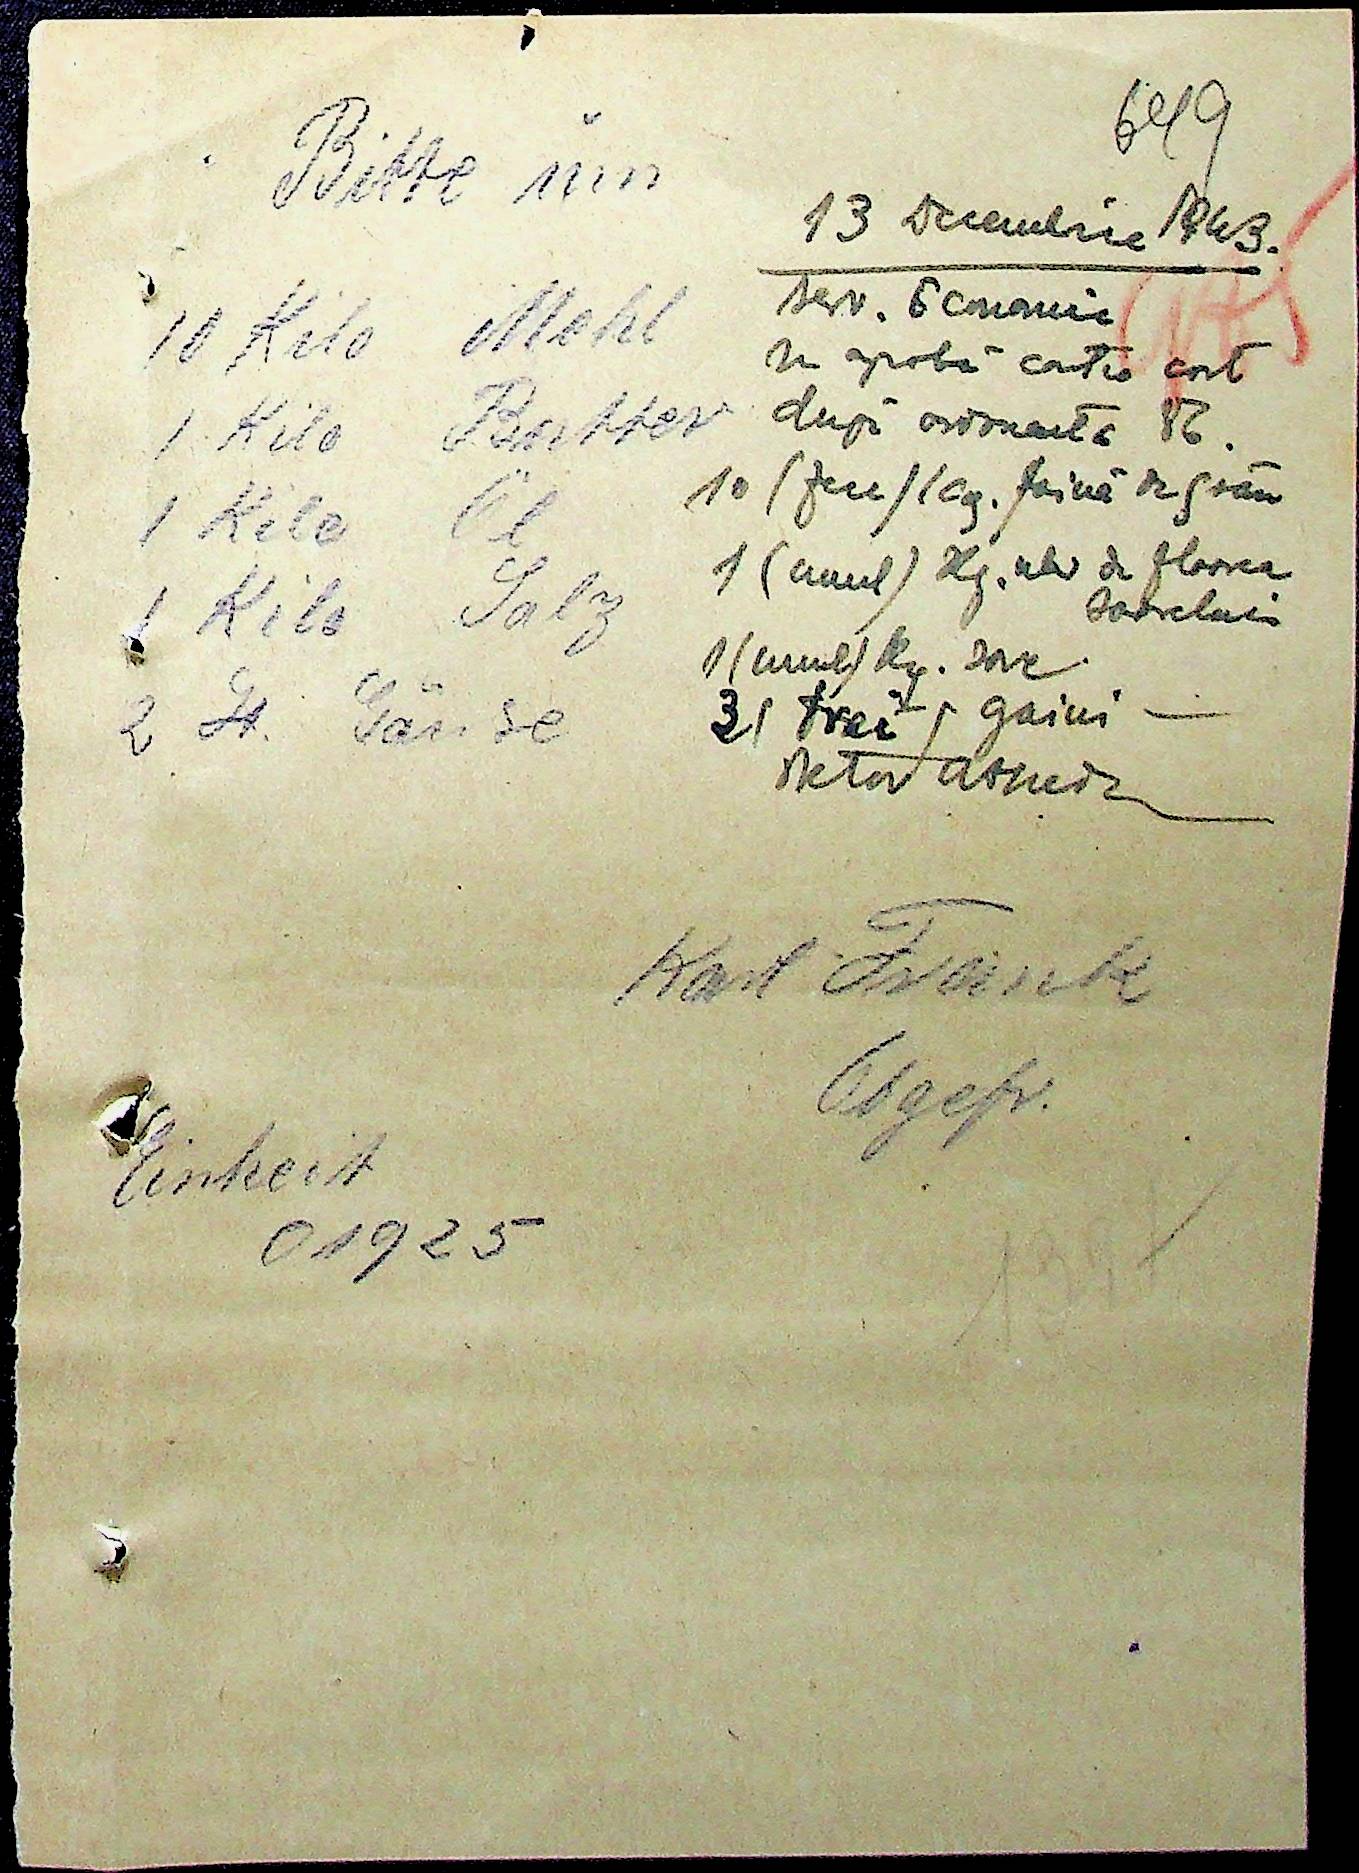 649
Bitte um
10 Kilo Mehl
1 Kilo Butter
1 Kilo Öl
1 Kilo Salz
2 St. Gänse
13 Decembrie 1943.
Serv. Economic
se aprobă contra cost
după ordonanța 86.
10 (zece) Kg. faină de grâu
1 (unul) Kg. ulei de floarea
soarelui
1 (unul) Kg. sare
3 ( trei ) gaini —
Karl Frank
Obgefr.
Einheit
01925